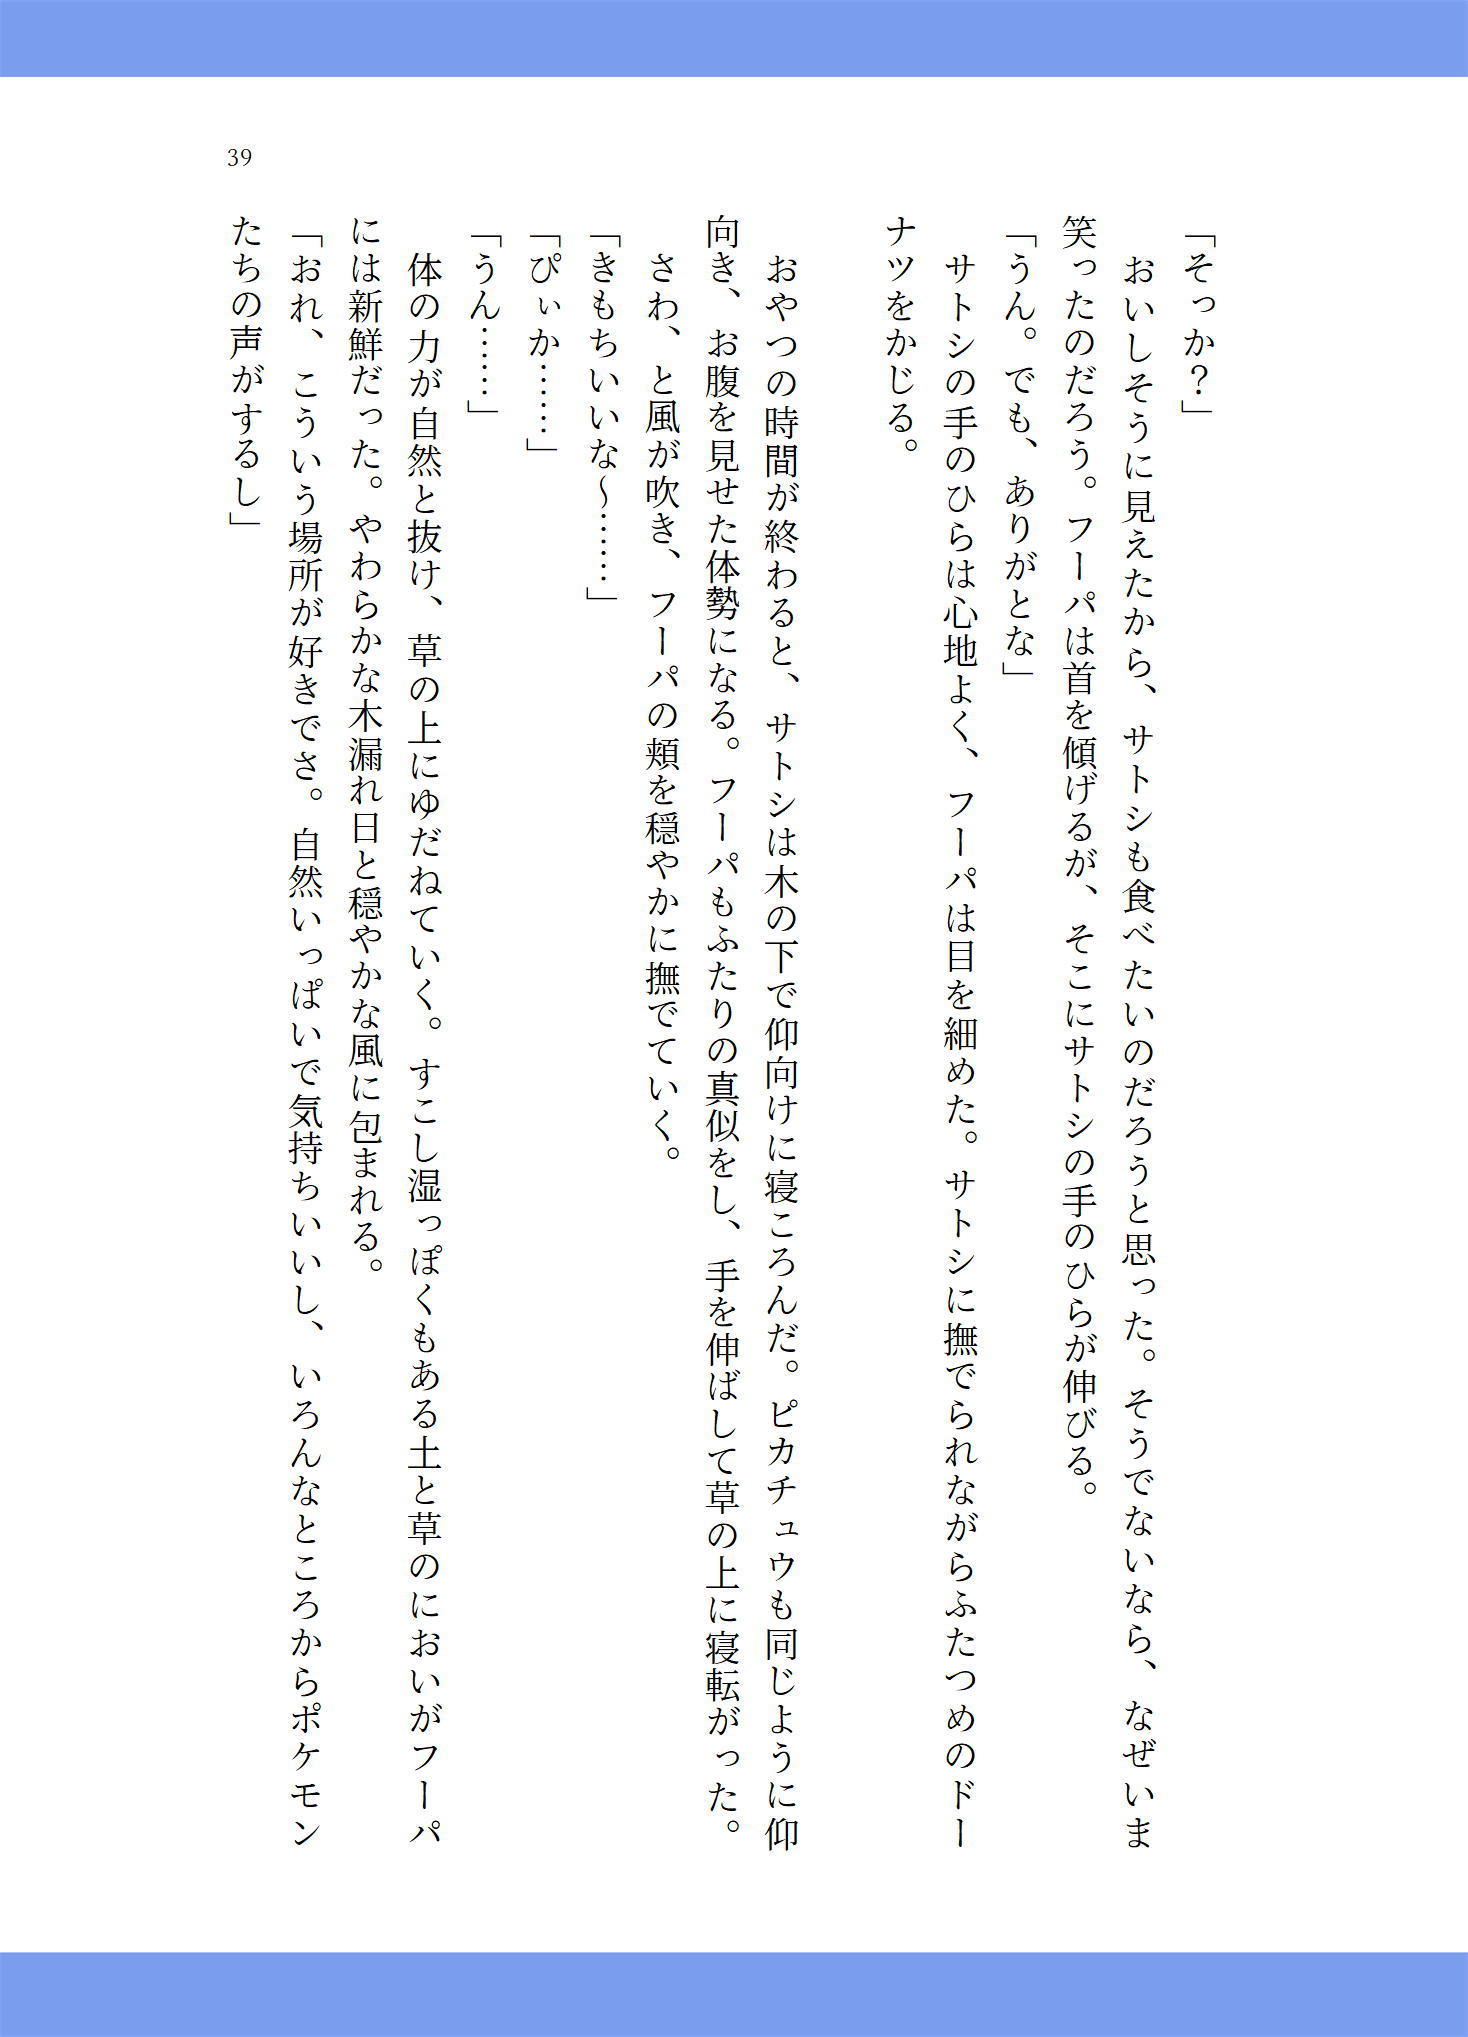 39
「そっか？」
　おいしそうに見えたから、サトシも食べたいのだろうと思った。そうでないなら、なぜいま
笑ったのだろう。フーパは首を傾げるが、そこにサトシの手のひらが伸びる。
「うん。でも、ありがとな」
　サトシの手のひらは心地よく、フーパは目を細めた。サトシに撫でられながらふたつめのドー
ナツをかじる。
　おやつの時間が終わると、サトシは木の下で仰向けに寝ころんだ。ピカチュウも同じように仰
向き、お腹を見せた体勢になる。フーパもふたりの真似をし、手を伸ばして草の上に寝転がった。
　さわ、と風が吹き、フーパの頬を穏やかに撫でていく。
「きもちいいな～……」
「ぴぃか……」
「うん……」
　体の力が自然と抜け、草の上にゆだねていく。すこし湿っぽくもある土と草のにおいがフーパ
には新鮮だった。やわらかな木漏れ日と穏やかな風に包まれる。
「おれ、こういう場所が好きでさ。自然いっぱいで気持ちいいし、いろんなところからポケモン
たちの声がするし」